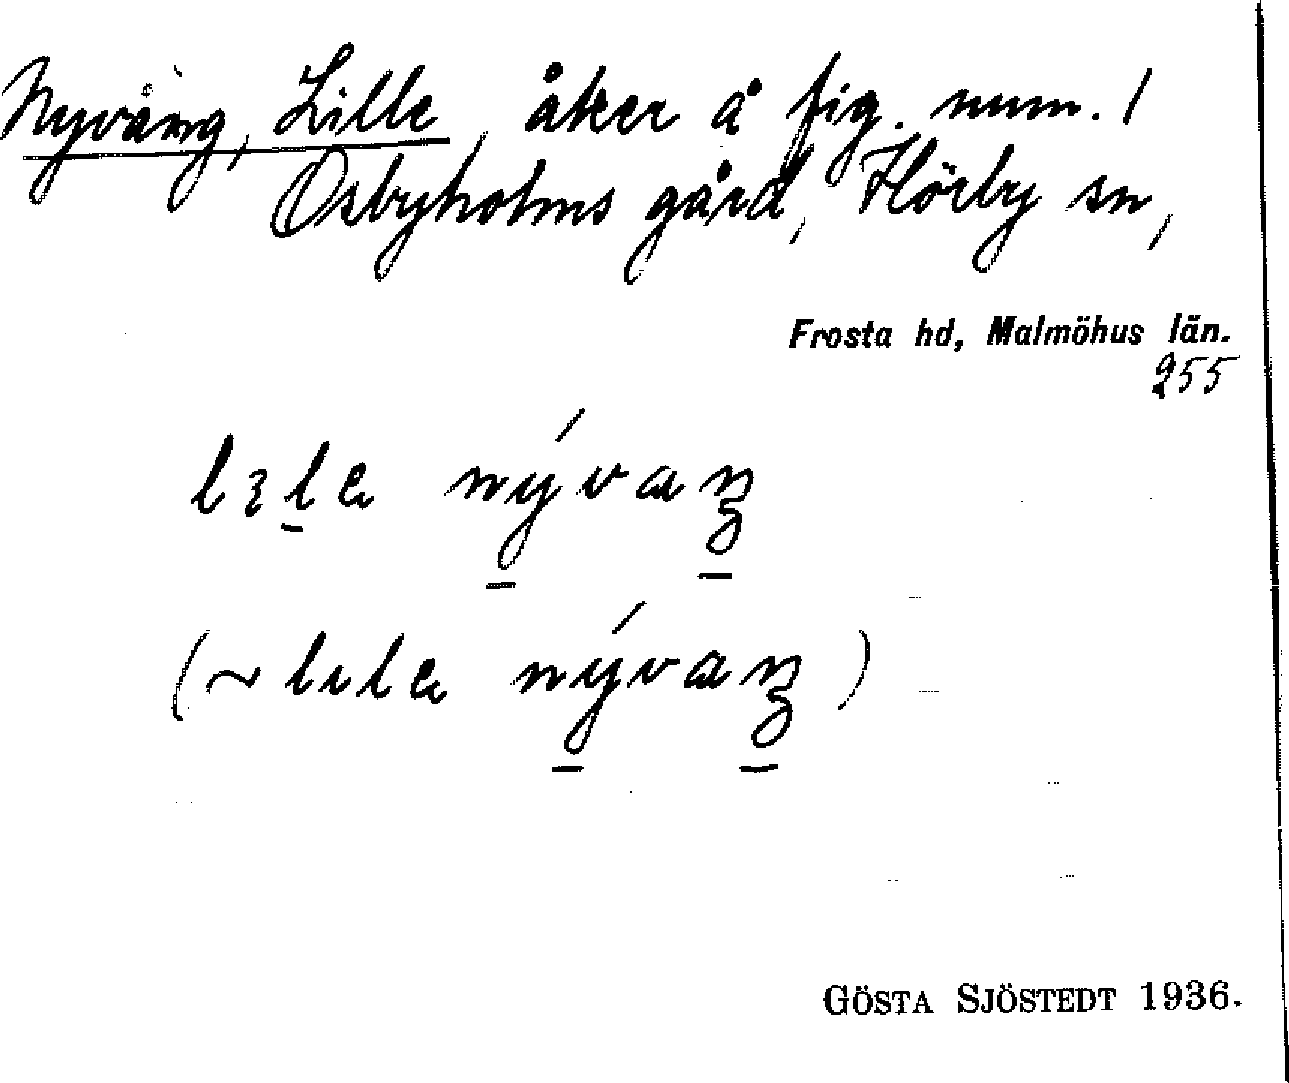 Nyvång, Lille, åker å fig. num. 1
Osbyholms gård, Hörby sn,
Frosta hd, Malmöhus län.
255
lɜle nývaŋ
(~ lıle nývaŋ)
GÖSTA SJÖSTEDT 1936.